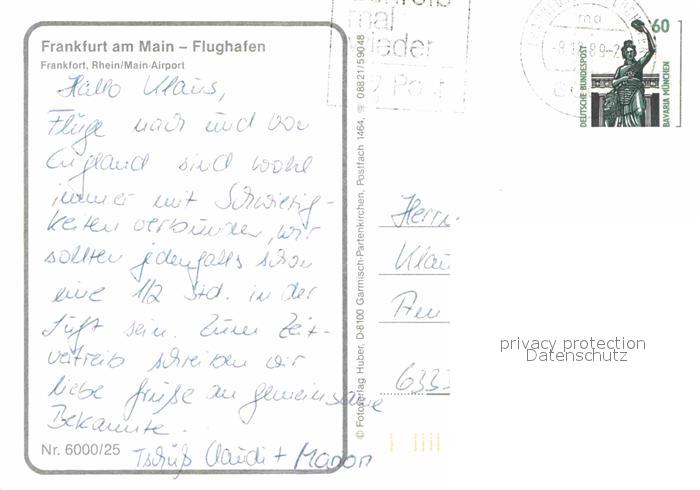 Frankfurt am Main – Flughafen
Frankfurt, Rhein/Main-Airport
Hallo Klaus,
Flüge nach und von
England sind wohl
immer mit Schwierig-
keiten verbunden, wir
sollten jedenfalls schon
eine 1/2 Std. in der
Luft sein. Zum Zeit-
vertreib schreiben wir
liebe Grüße an gemeinsame
Bekannte.
Tschüß Claudi + Manon
Nr. 6000/25
© Fotoverlag Huber, D-8100 Garmisch-Partenkirchen, Postfach 1464, ☎ 08821/59048
mal
wieder
Post
DEUTSCHE BUNDESPOST
60
BAVARIA MÜNCHEN
Herrn
Klau
Am
6333
privacy protection
Datenschutz